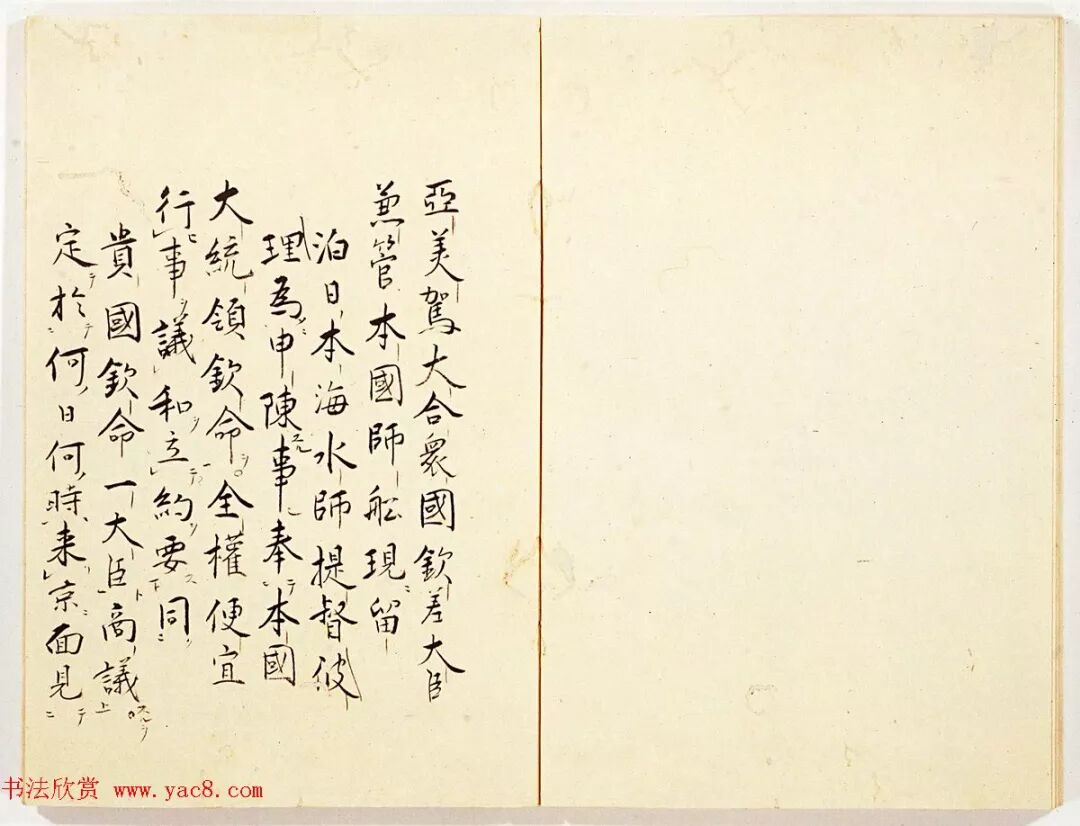 亞美駕大合衆國欽差大臣
兼管本國師船現留
泊日本海水師提督彼
理為申陳事奉本國
大統領欽命全權便宜
行事議和立約要同
貴國欽命一大臣商議
定於何日何時来京面見
书法欣赏 www.yac8.com